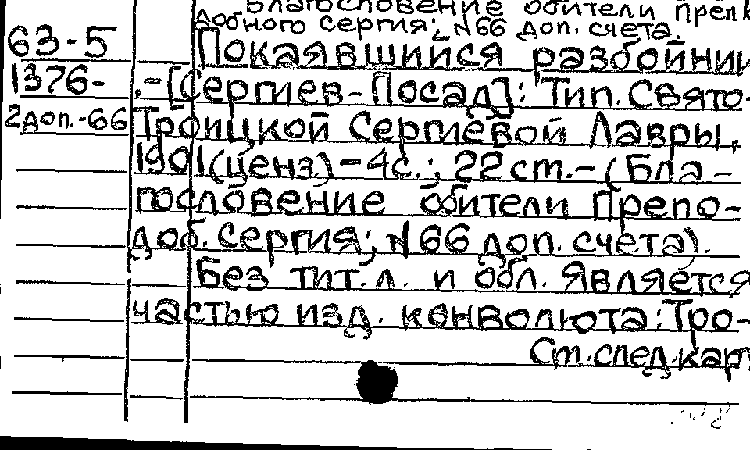 Благословение обители Препо
добного Сергия; N66 доп. счета.
63-5 Покаявшийся разбойник
1376- .-[Сергиев-Посад]: Тип. Свято-
2доп.-66 Троицкой Сергиевой Лавры,
1901(ценз)-4с.; 22 ст.-(Бла-
гословение обители Препо-
доб. Сергия; N66 доп. счета).
Без тит.л. и обл. Является
частью изд. конволюта: Тро-
См.след.кар